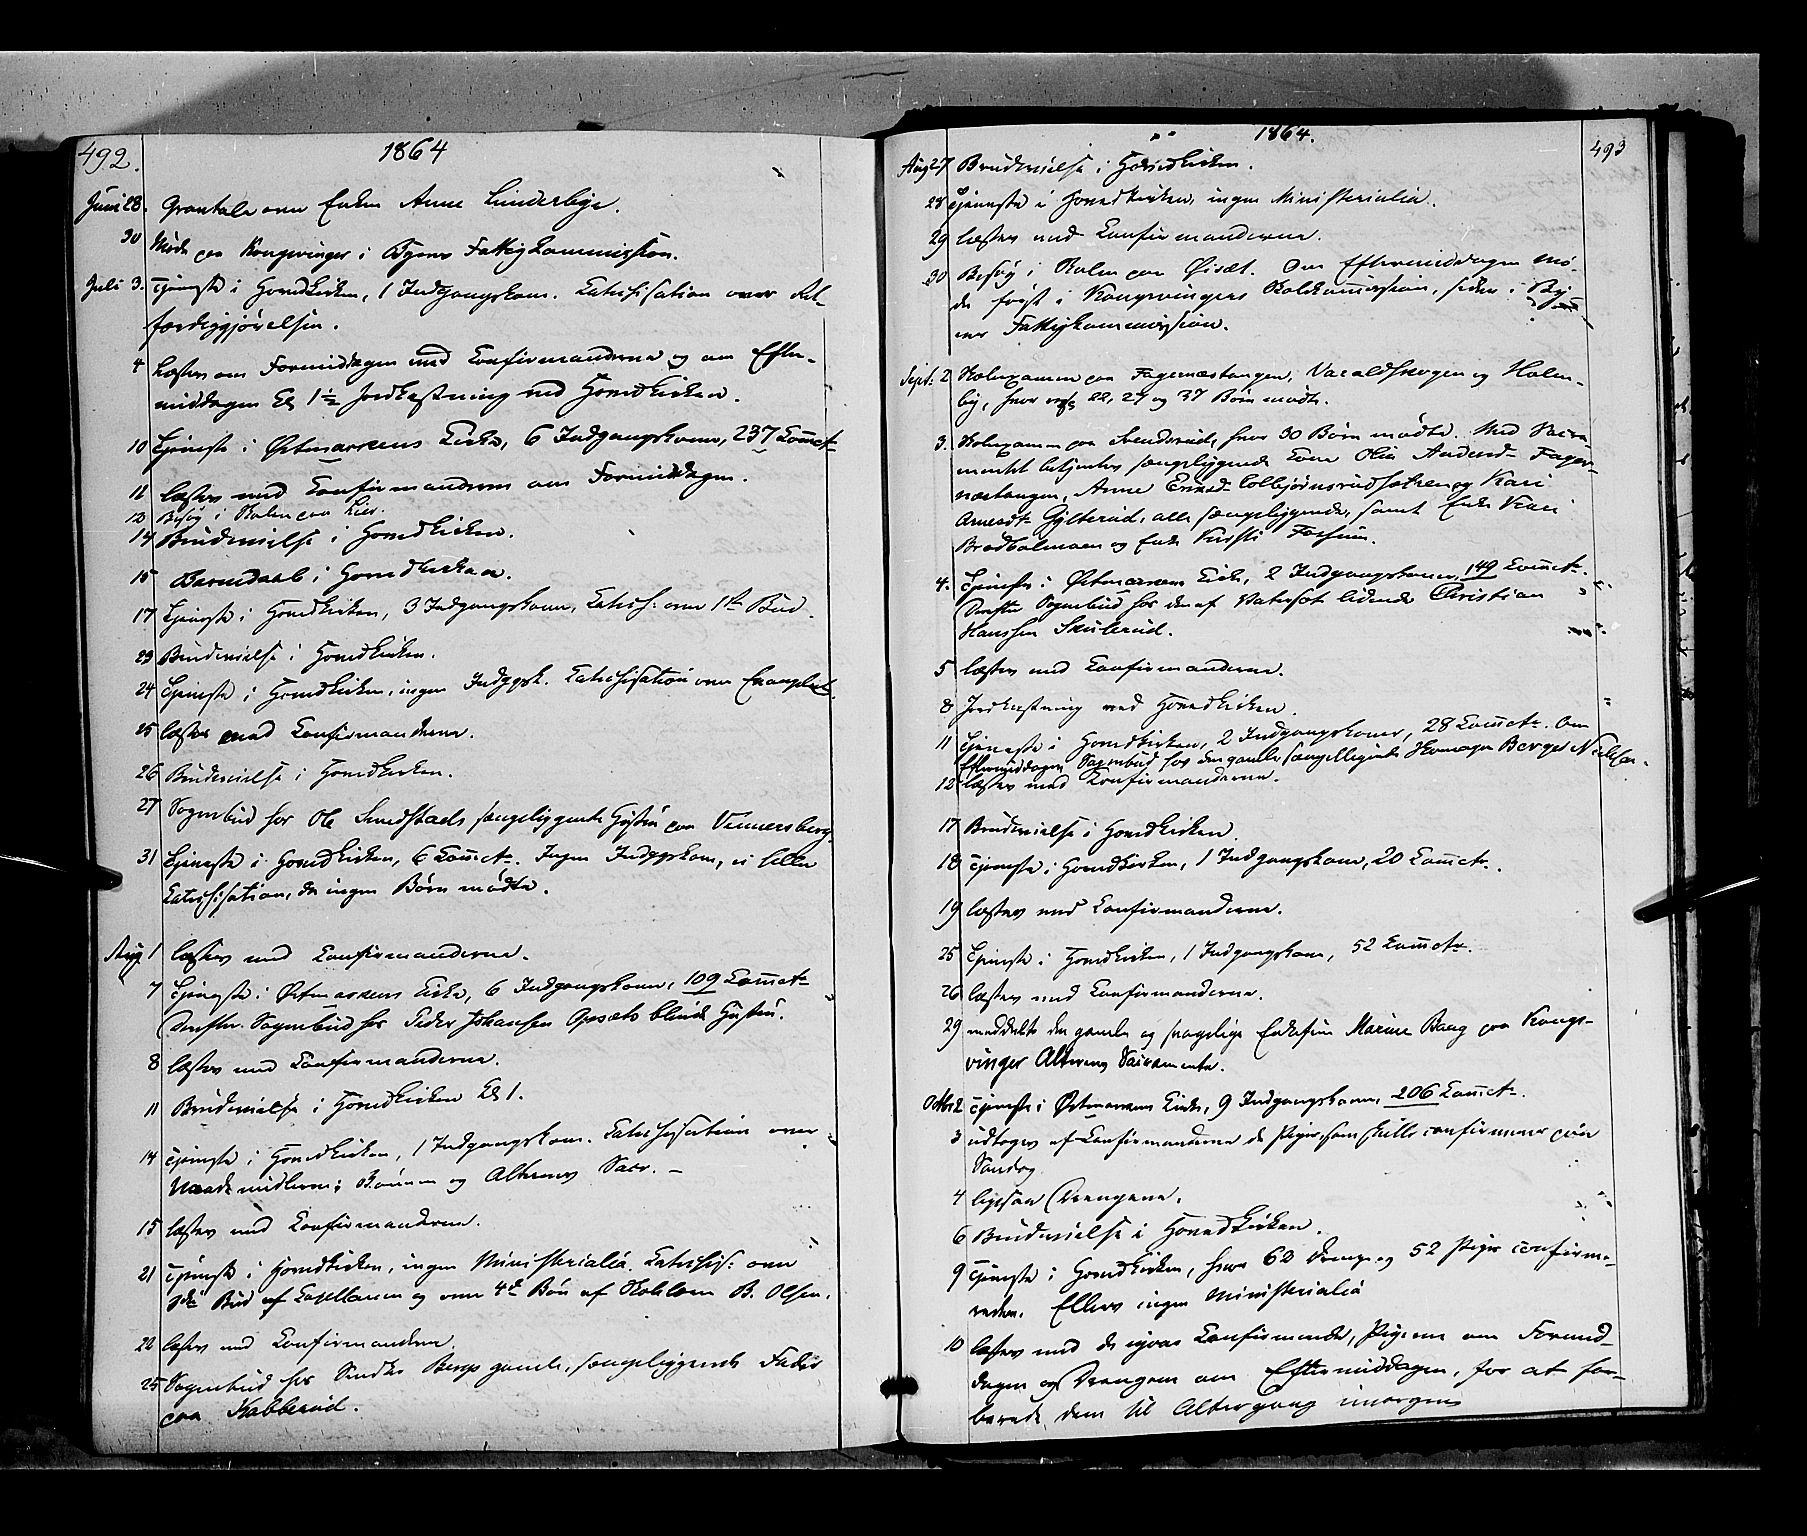 492.
1864
Juni 28. Gravtale over Enken Anne Linderbye.
30 Møde paa Kongsvinger i Byens Fattigkommission.
Juli 3. Tjeneste i Hovedkirken, 1 Indgangskone. Catechisation over Ret-
færdiggjørelsen.
4 Læstes om Formiddagen med Confirmanderne og om Efter-
middagen Kl 1½ Jordkastning ved Hovedkirken.
10 Tjeneste i Østmarkens Kirke, 6 Indgangskoner, 237 Comct.
11 læstes med Confirmanderne om Formiddagen.
12 Besøg i Skolen paa Lier.
14 Brudevielse i Hovedkirken.
15 Barnedaab i Hovedkirken.
17 Tjeneste i Hovedkirken, 3 Indgangskoner, Catech: over 1ste Bud.
23 Brudevielse i Hovedkirken.
24 Tjeneste i Hovedkirken, ingen Indggsk. Catechisation over Evangeliet.
25 læstes med Confirmanderne.
26 Brudevielse i Hovedkirken.
27 Sognebud hos Ole Smedstads sengeliggende Hustru paa Vennersberg.
31 Tjeneste i Hovedkirken, 6 Comct. Ingen Indggskone, ei heller
Catechisation, da ingen Børn mødte.
Aug 1 læstes med Confirmanderne.
7 Tjeneste i Østmarkens Kirke, 6 Indgangskoner, 109 Comct.
Derefter Sognebud hos Peder Johansen Opsæts blinde Hustru.
8 læstes med Confirmanderne.
11 Brudevielse i Hovedkirken Kl 1.
14 Tjeneste i Hovedkirken, 1 Indgangskone. Catechisation over
Naademidlerne; Bønnen og Alterens Sacr. –
15 læstes med Confirmanderne.
21 Tjeneste i Hovedkirken, ingen Ministerialia. Catechis: over
Bud af Capellanen og over 4de Bøn af Skolelærer B. Olsen.
22 læstes med Confirmanderne
25 Sognebud hos Bergs gamle, sengeliggende Fader
paa Kabberud.
1864.
493
Aug 27 Brudevielse i Hovedkirken.
28 Tjeneste i Hovedkirken, ingen Ministerialia.
29 læstes med Confirmanderne.
30 Besøg i Skolen paa Øisæt. Om Eftermiddagen Mø-
de først i Kongsvingers Skolekommission, siden i By-
ens Fattigkommission.
Septr 2 Skoleexamen paa Fagernæstangen, Varaldskogen og Holm-
by, hvor resp 22, 27 og 37 Børn mødte.
3. Skoleexamen paa Svendsrud, hvor 30 Børn mødte. Med Sacra-
mentet betjentes sengeliggende Kone Olia Andersd. Fager-
næstangen, Anne Ericsd. Colbjørnsrudsætren og Kari
Arnesdt. Gylterud, alle sengeliggende, samt Enke Kari
Bredholmoen og Enke Kirsti Fossum.
4. Tjeneste i Østmarkens Kirke, 2 Indgangskoner, 149 Comct.
Derefter Sognebud hos den af Vatersot lidende Christian
Hanssen Skulerud.
5 læstes med Confirmanderne.
8 Jordkastning ved Hovedkirken.
11 Tjeneste i Hovedkirken, 2 Indgangskoner, 28 Comct. Om
Eftermiddagen Sognebud hos den gamle sengeliggende Skomager Berger Nielsen.
12 læstes med Konfirmanderne.
17 Brudevielse i Hovedkirken.
18 Tjeneste i Hovedkirken, 1 Indgangskone, 20 Comct.
19 læstes med Confirmanderne.
25 Tjeneste i Hovedkirken, 1 Indgangskone, 52 Comct.
26 læstes med Confirmanderne.
29 meddelte den gamle og svagelige Enkefru Marine Bang paa Kongs-
vinger Alterens Sacramente.
Octbr 2 Tjeneste i Østmarkens Kirke, 9 Indgangskoner, 206 Comct.
3 udtoges af Confirmanderne de Piger, som skulle confirmeres paa
Søndag.
4 ligesaa Drengene.
6 Brudevielse i Hovedkirken.
9 Tjeneste i Hovedkirken, hvor 62 Drenge og 52 Piger confirme-
redes. Ellers ingen Ministerialia
10 læstes med de igaar Confirmerede, Pigerne om Formid-
dagen og Drengene om Eftermiddagen, for at for-
berede dem til Altergang imorgen